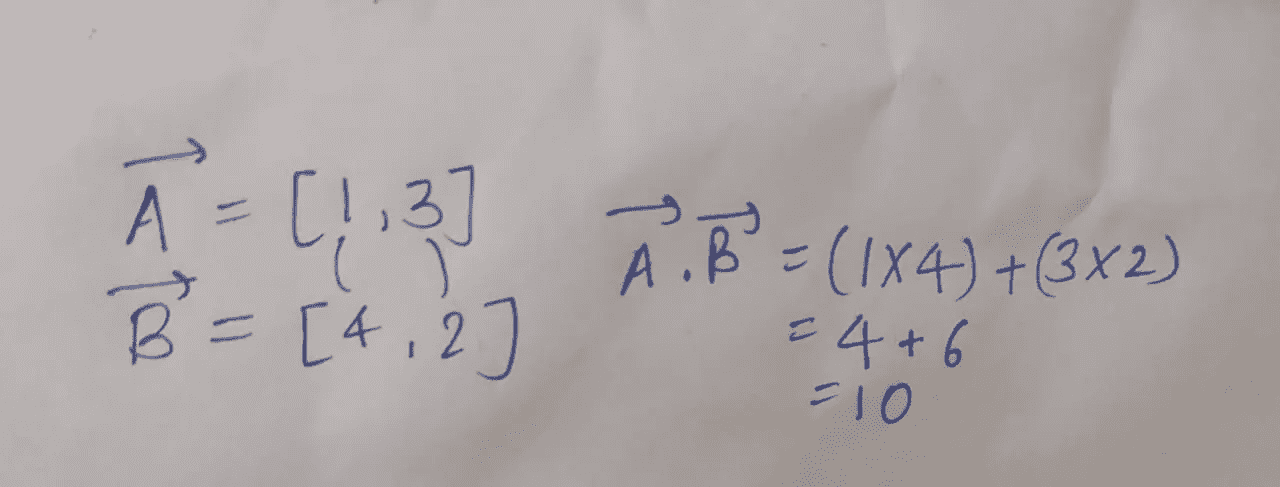 A⃗ = [1,3]
( )
B⃗ = [4,2]
A⃗.B⃗ = (1x4)+(3x2)
= 4+6
=10